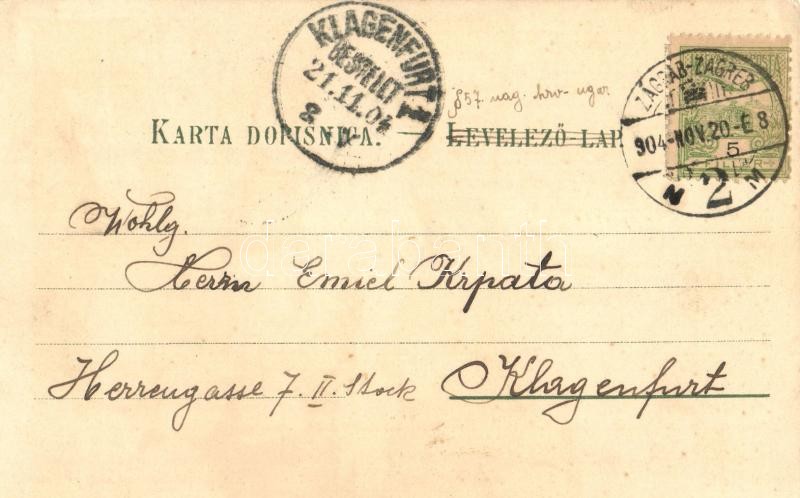 KLAGENFURT 1
BESTELLT
21.11.04
8. V.
ZÁGRÁB-ZAGREB
904-NOV.20-E 8
N 2 M
5
§57. nag. hrv- ugar
KARTA DOPISNICA. — LEVELEZŐ LAP
Wohlg.
Herrn Emiel Krpata
Herrengasse 7. II. Stock Klagenfurt
darabanth